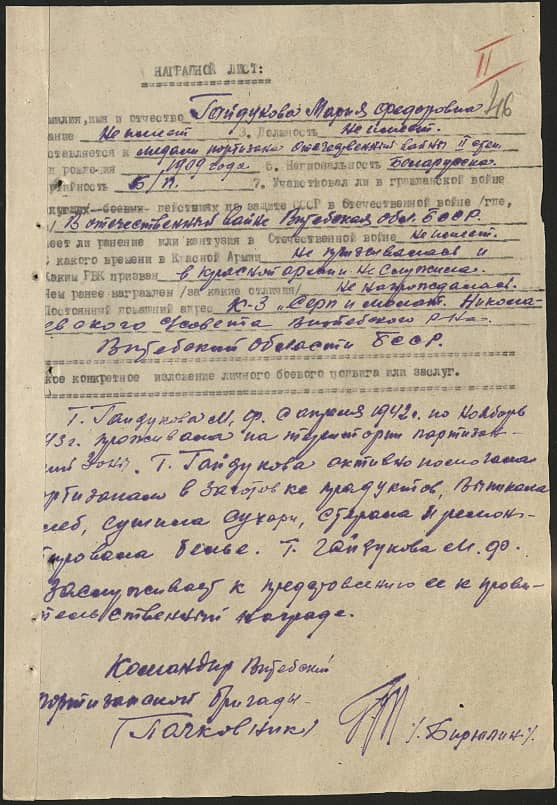 II
НАГРАДНОЙ ЛИСТ:
46
милия, имя и отчество Гайдукова Мария Федоровна
вание Не имеет 3. Должность Не имеет.
ставляется к медали партизана Отечественной войны II степ.
д рождения 1909 года 5. Национальность Беларуска
тийность Б/П. 7. Участвовал ли в гражданской войне
боевых действиях по защите СССР в Отечественной войне /где,
В отечественный войне Витебская обл. БССР.
еет ли ранение или контузия в Отечественной войне Не имеет.
какого времени в Красной Армии Не призывалась и
Каким РВК призван в Красной армии не служила.
Чем ранее награжден /за какие отличия/ Не награждалась.
Постоянный домашний адрес К-з "Серп и молот" Никола-
евского С/совета Витебского р-на
Витебский области БССР.
кое конкретное изложение личного боевого подвига или заслуг.
Т. Гайдукова М. Ф. с апреля 1942г. по ноябрь
43г. проживала на територии партизан-
ский зоны. Т. Гайдукова активно помогала
артизанам в заготовке продуктов, выпекала
леб, сушила сухари, стирала и ремон-
тировала белье. Т. Гайдукова М. Ф.
Заслуживает к представлению ее к прави-
тельственный награде.
Командир Витебский
партизанской бригады
(Пачковник) /. Бирюлин /.